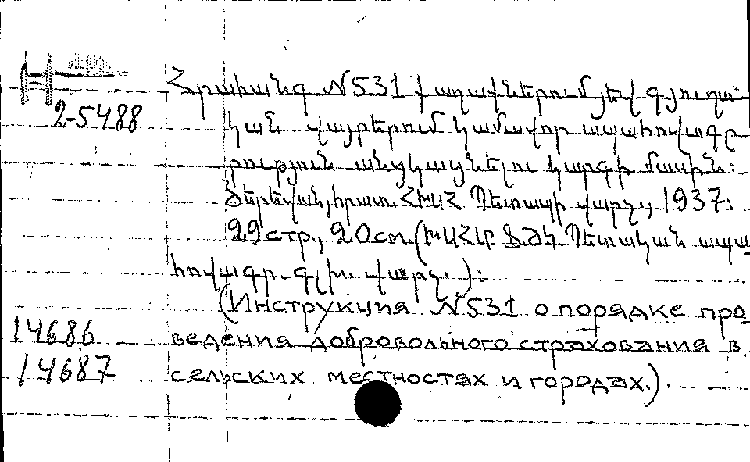 Հրահանգ №531 քաղաքներում յեվ գյուղա-
2-5488
կան վայրերում կամավոր ապահովագր
րություն անցկացնելու կարգի մասին:
Յերեվան, հրատ. ՀԽՍՀ Պետապի վարչ., 1937.
22 стр., 20 см. (ԽՍՀՄ ՖԺԿ Պետական ապա
հովագր. գլխ. վարչ.):
(Инструкция №531 о порядке про
14686 ведения добровольного страхования в
14687 сельских местностях и городах.).